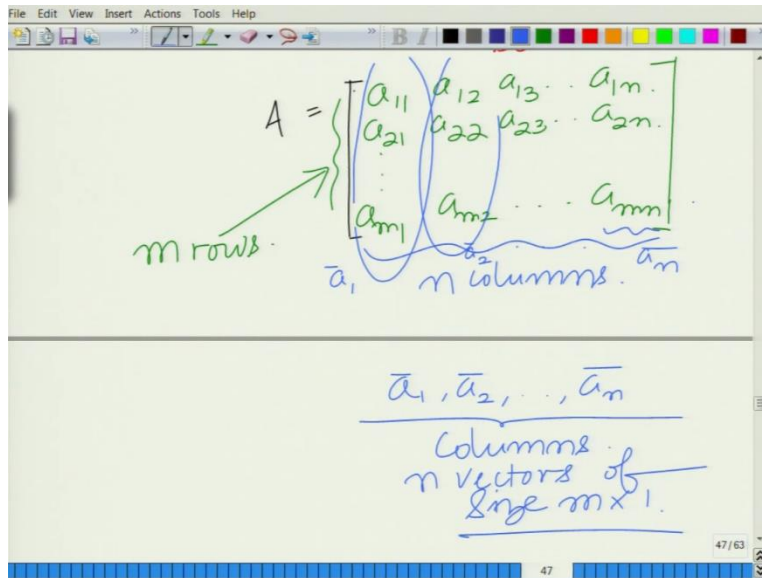 File Edit View Insert Actions Tools Help
A = a11 a12 a13 .. a1n.
a21 a22 a23 .. a2n.
:
am1 am2 ... amn
m rows.
ā1 ā2 ān
n columns.
ā1, ā2, .., ān
Columns.
n vectors of
Size m×1.
47/63
47